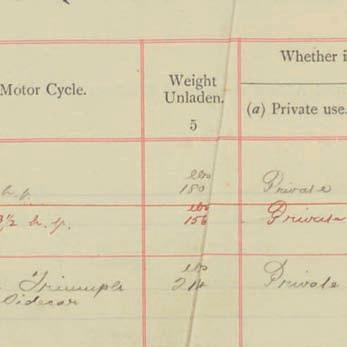 Whether i
Motor Cycle.
Weight
Unladen.
5
(a) Private use.
lbs
h.p. 180 Private
lbs
3½ h.p. 156 Private
lbs
Triumph Private
Sidecar